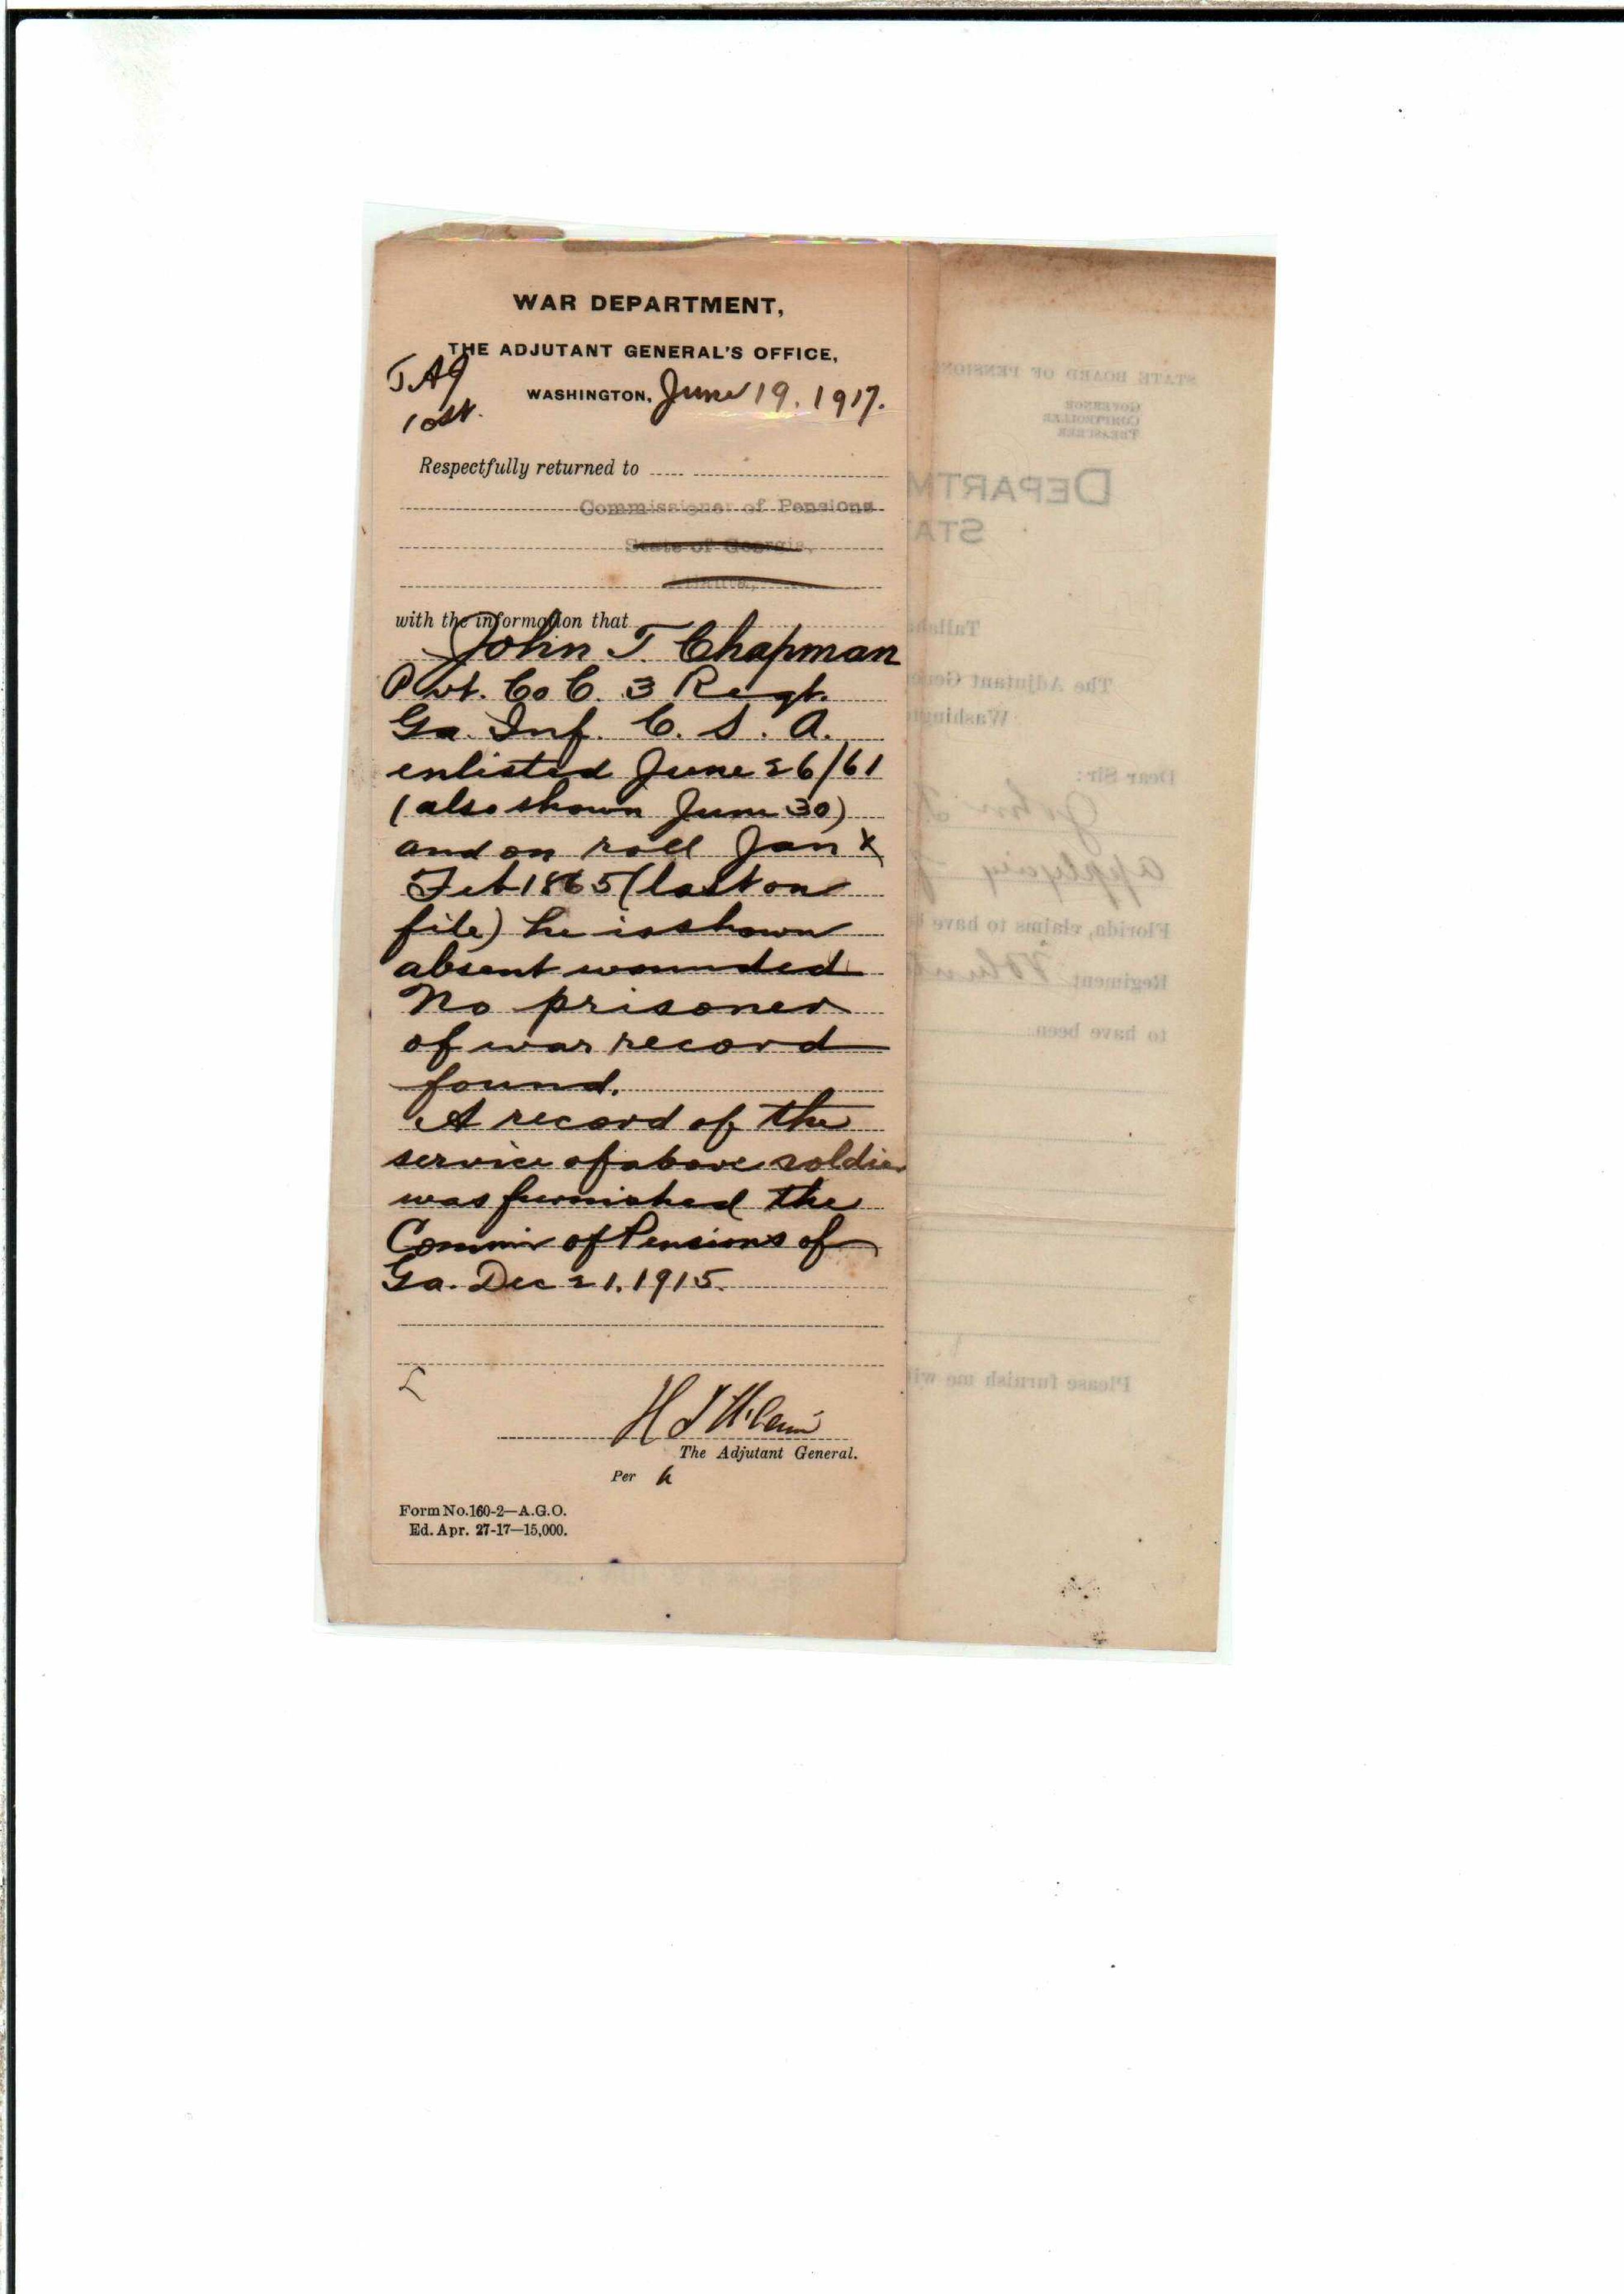 WAR DEPARTMENT,
THE ADJUTANT GENERAL'S OFFICE,
WASHINGTON, June 19, 1917.
Respectfully returned to
Commissioner of Pensions
State of Georgia,
Atlanta,
with the information that
John T. Chapman
Pvt. Co C. 3 Regt.
Ga. Inf. C. S. A.
enlisted June 26/61
(also shown June 30)
and on roll Jan &
Feb 1865 (last on
file) he is shown
absent wounded
No prisoner
of war record
found.
A record of the
service of above soldier
was furnished the
Commr of Pensions of
Ga. Dec 21, 1915.
The Adjutant General.
Per
Form No. 160-2—A.G.O.
Ed. Apr. 27-17—15,000.
STATE BOARD OF PENSIONS
GOVERNOR
COMPTROLLER
TREASURER
DEPARTM
STA
Talla
The Adjutant Gene
Washingt
Dear Sir:
John
applying f
Florida, claims to have
Regiment
to have been
Please furnish me wi